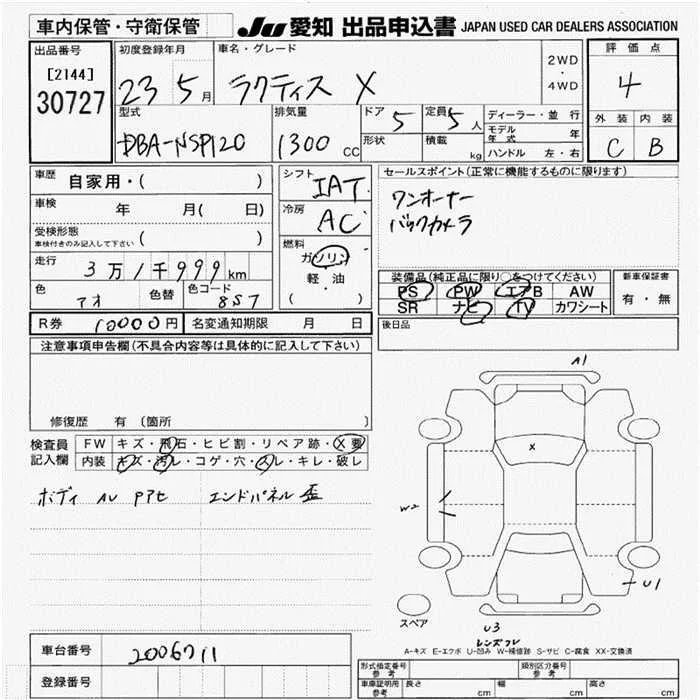 車内保管・守衛保管
JU 愛知 出品申込書 JAPAN USED CAR DEALERS ASSOCIATION
出品番号 初度登録年月 車名・グレード 2WD ・ 4WD 評価点
[2144]
30727 23 5月 ラクティス X 4
型式 排気量 ドア 5 定員 5人 ディーラー・並行 外装 内装
DBA-NSP120 1300cc 形状 積載 kg モデル年式 年 C B
ハンドル 左・右
車歴 自家用・( ) シフト IAT セールスポイント(正常に機能するものに限ります)
車検 年 月( 日) 冷房 AC ワンオーナー
受検形態 ( ) バックカメラ
車検付きのみ記入して下さい
燃料 ガソリン
走行 3万1千999km 軽・油 装備品(純正品に限り○をつけてください) 新車保証書
色 アオ 色替 色コード 8S7 ( ・ ) PS PW エアB AW 有・無
SR ナビ TV カワシート
R券 10000円 名変通知期限 月 日 後日品
注意事項申告欄(不具合内容等は具体的に記入して下さい)
A1
修復歴 有 〔箇所 〕
検査員 FW キズ・飛石・ヒビ割・リペア跡・X要
記入欄 内装 キズ・汚レ・コゲ・穴・スレ・キレ・破レ
X
ボディ AU Pアセ エンドパネル歪
W2
U1
スペア
U3
レンズワレ
A-キズ E-エクボ U-凹み W-補修跡 S-サビ C-腐食 XX-交換済
車台番号 2006711
登録番号
形式指定番号 参考 類別区分番号 参考
車庫証明用 参考 長さ cm 幅 cm 高さ cm